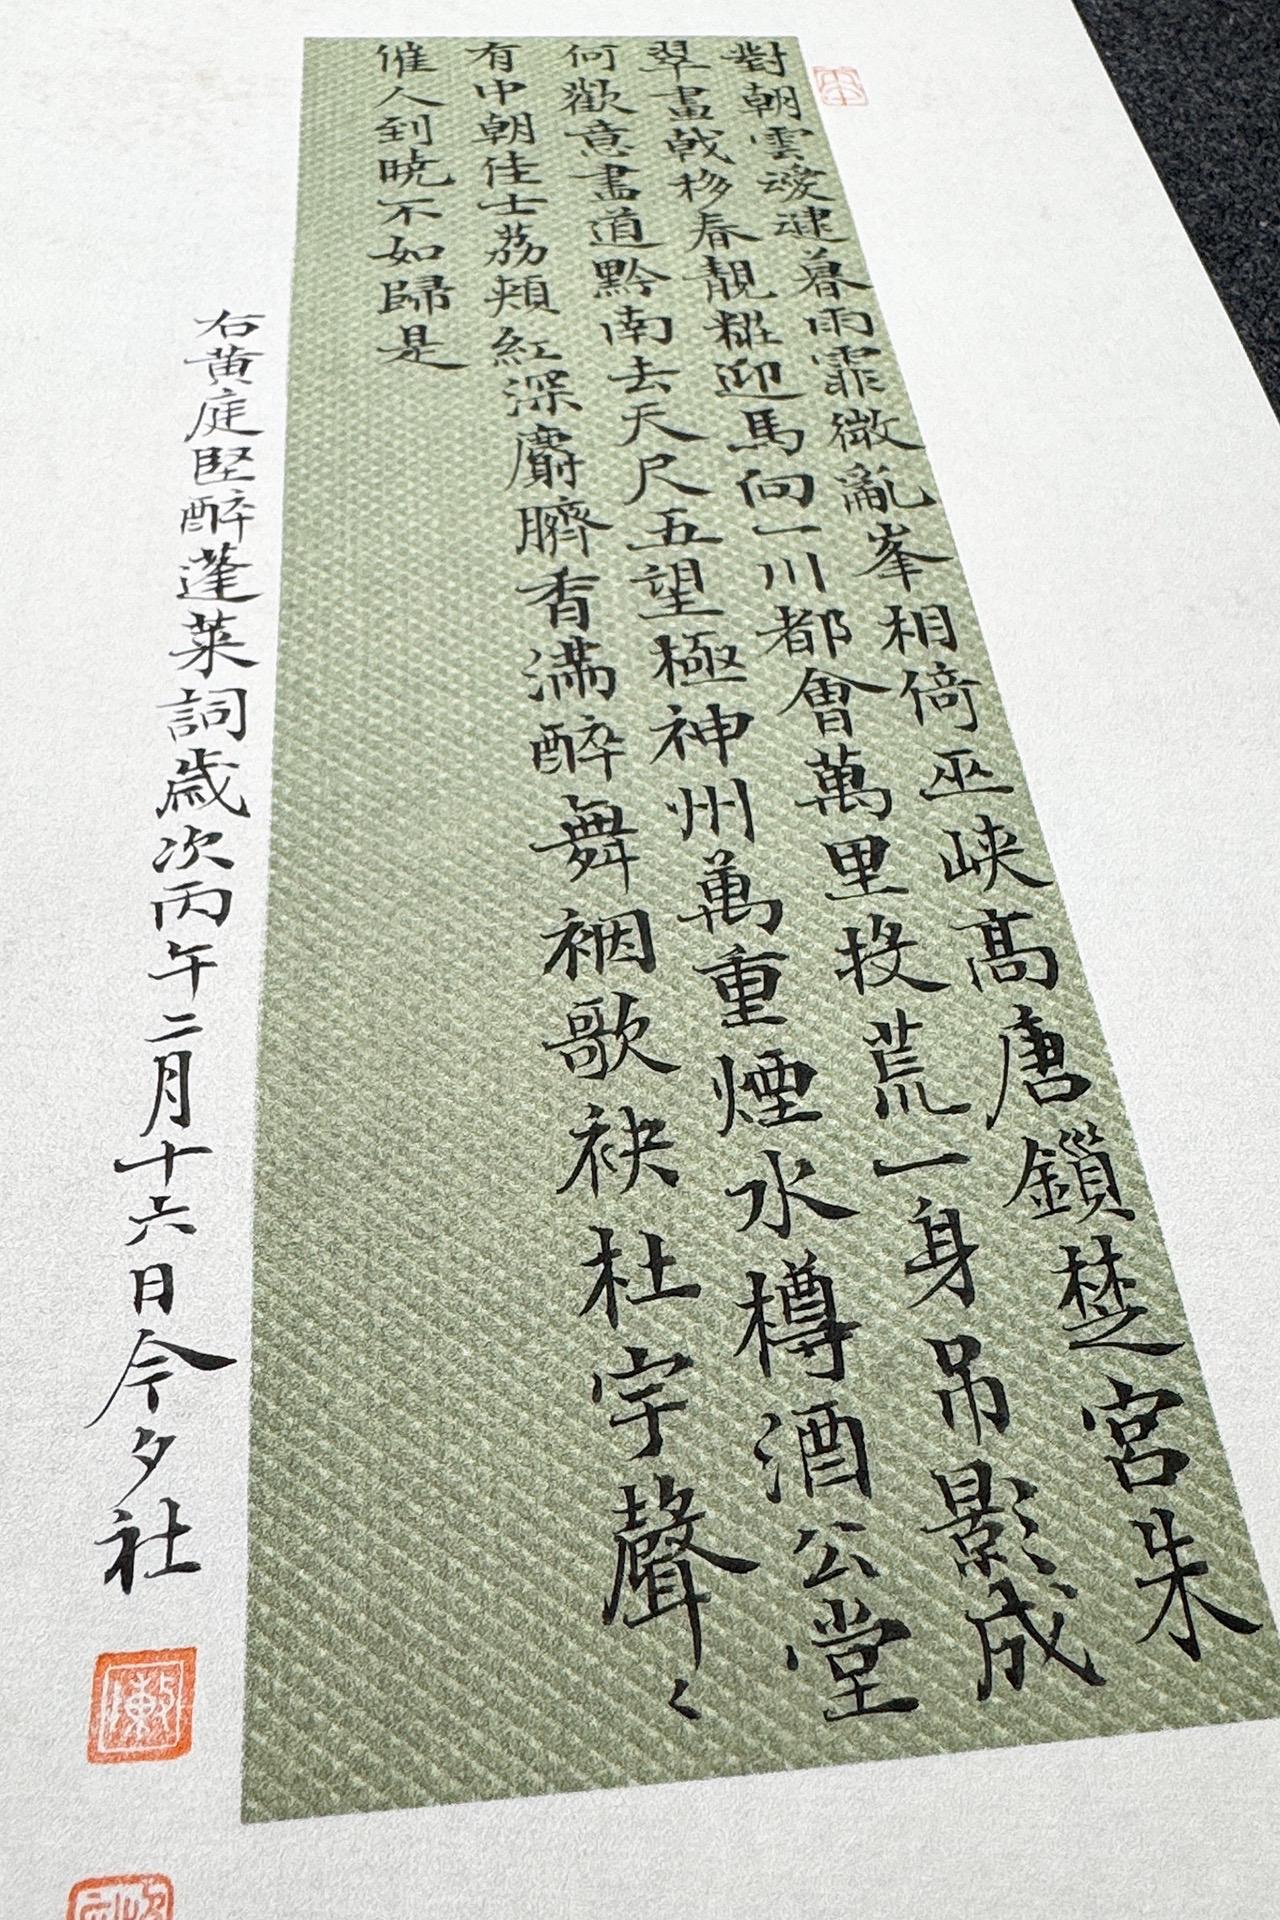 對朝雲叆叇暮雨霏微亂峯相倚巫峽高唐鎖楚宮朱
翠畫戟移春靚糚迎馬向一川都會萬里投荒一身吊影成
何歡意盡道黔南去天尺五望極神州萬重煙水樽酒公堂
有中朝佳士荔頰紅深麝臍香滿醉舞裀歌袂杜宇聲〻
催人到曉不如歸是
右黄庭堅醉蓬萊詞歲次丙午二月十六日今夕社